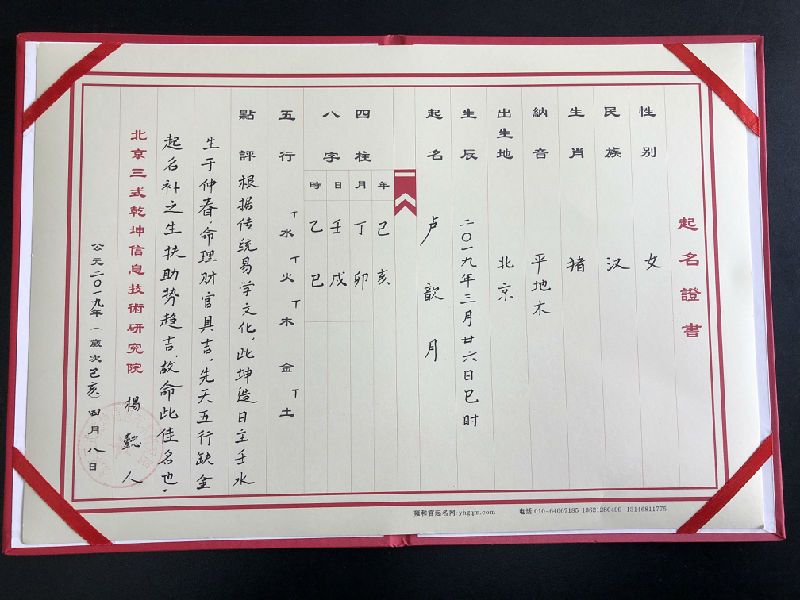 起名證書
性别 女
民族 汉
生肖 猪
納音 平地木
出生地 北京
生辰 二〇一九年三月廿六日巳时
起名 卢歆月
四柱八字
年 己亥
月 丁卯
日 壬戌
時 乙巳
五行 水 火 木 金 土
點評 根据传统易学文化，此坤造日主壬水
生于仲春，命理财官具吉，先天五行缺金
起名补之生扶助势趋吉，故命此佳名也。
北京三式乾坤信息技術研究院 楊懿人
公元二〇一九年 歲次己亥 四月八日
雍和宫起名网:yhgqm.com
电话:010-64007185
13146811775